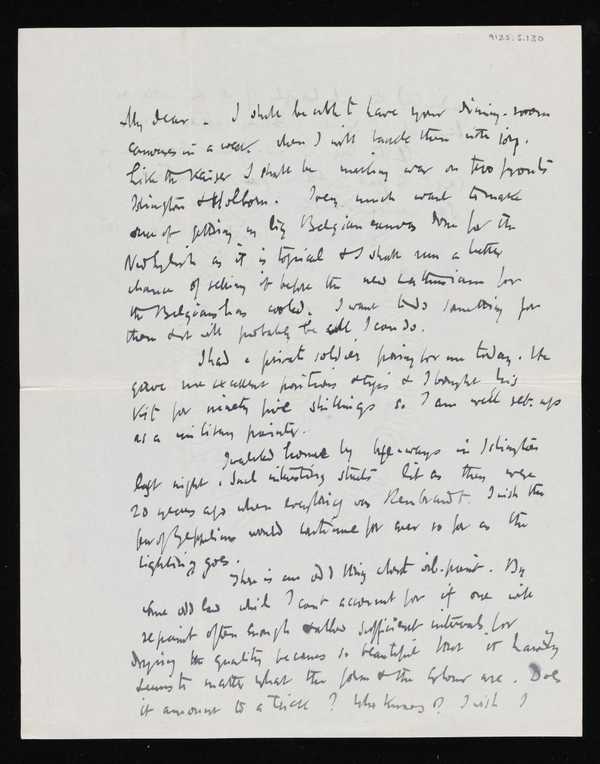 9125.5.130
My dear. I shall be able to have your dining-room
canvases in a week. when I will tackle them with joy.
Like the Kaiser I shall be making war on two fronts
Islington & Holborn. I very much want to make
sure of getting my big Belgian canvas done for the
New English as it is topical & I shall run a better
chance of selling it before the new enthusiasm for
the Belgians has cooled. I want to do something for
them & it will probably be all I can do.
I had a private soldier posing for me today. He
gave me excellent positions & tips & I bought his
Kit for ninety five shillings so I am well set-up
as a military painter.
I walked home by bye-ways in Islington
last night. Such interesting streets lit as they were
20 years ago when everything was Rembrandt. I wish the
fear of Zeppelins would continue for ever so far as the
lighting goes.
There is one odd thing about oil-paint. By
some odd law which I cant account for if one will
repaint often enough & allow sufficient intervals for
drying the quality becomes so beautiful that it hardly
seems to matter what the form & the colour are. Does
it amount to a trick? Who knows? I wish I